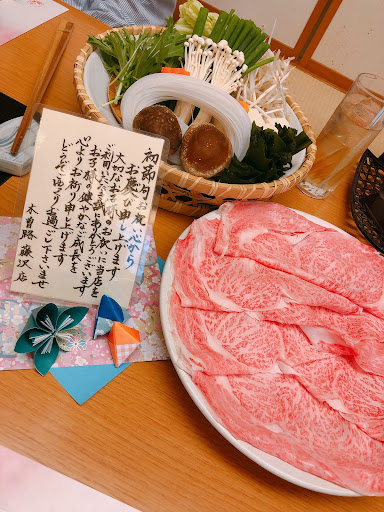 初節句お祝い心から
お慶び申し上げます
大切なお子様のお祝いに当店を
ご利用いただき誠にありがとうございます
お子様の健やかなご成長を
心よりお祈り申し上げます
どうぞごゆっくりお過ごし下さいませ
木曽路 藤沢店